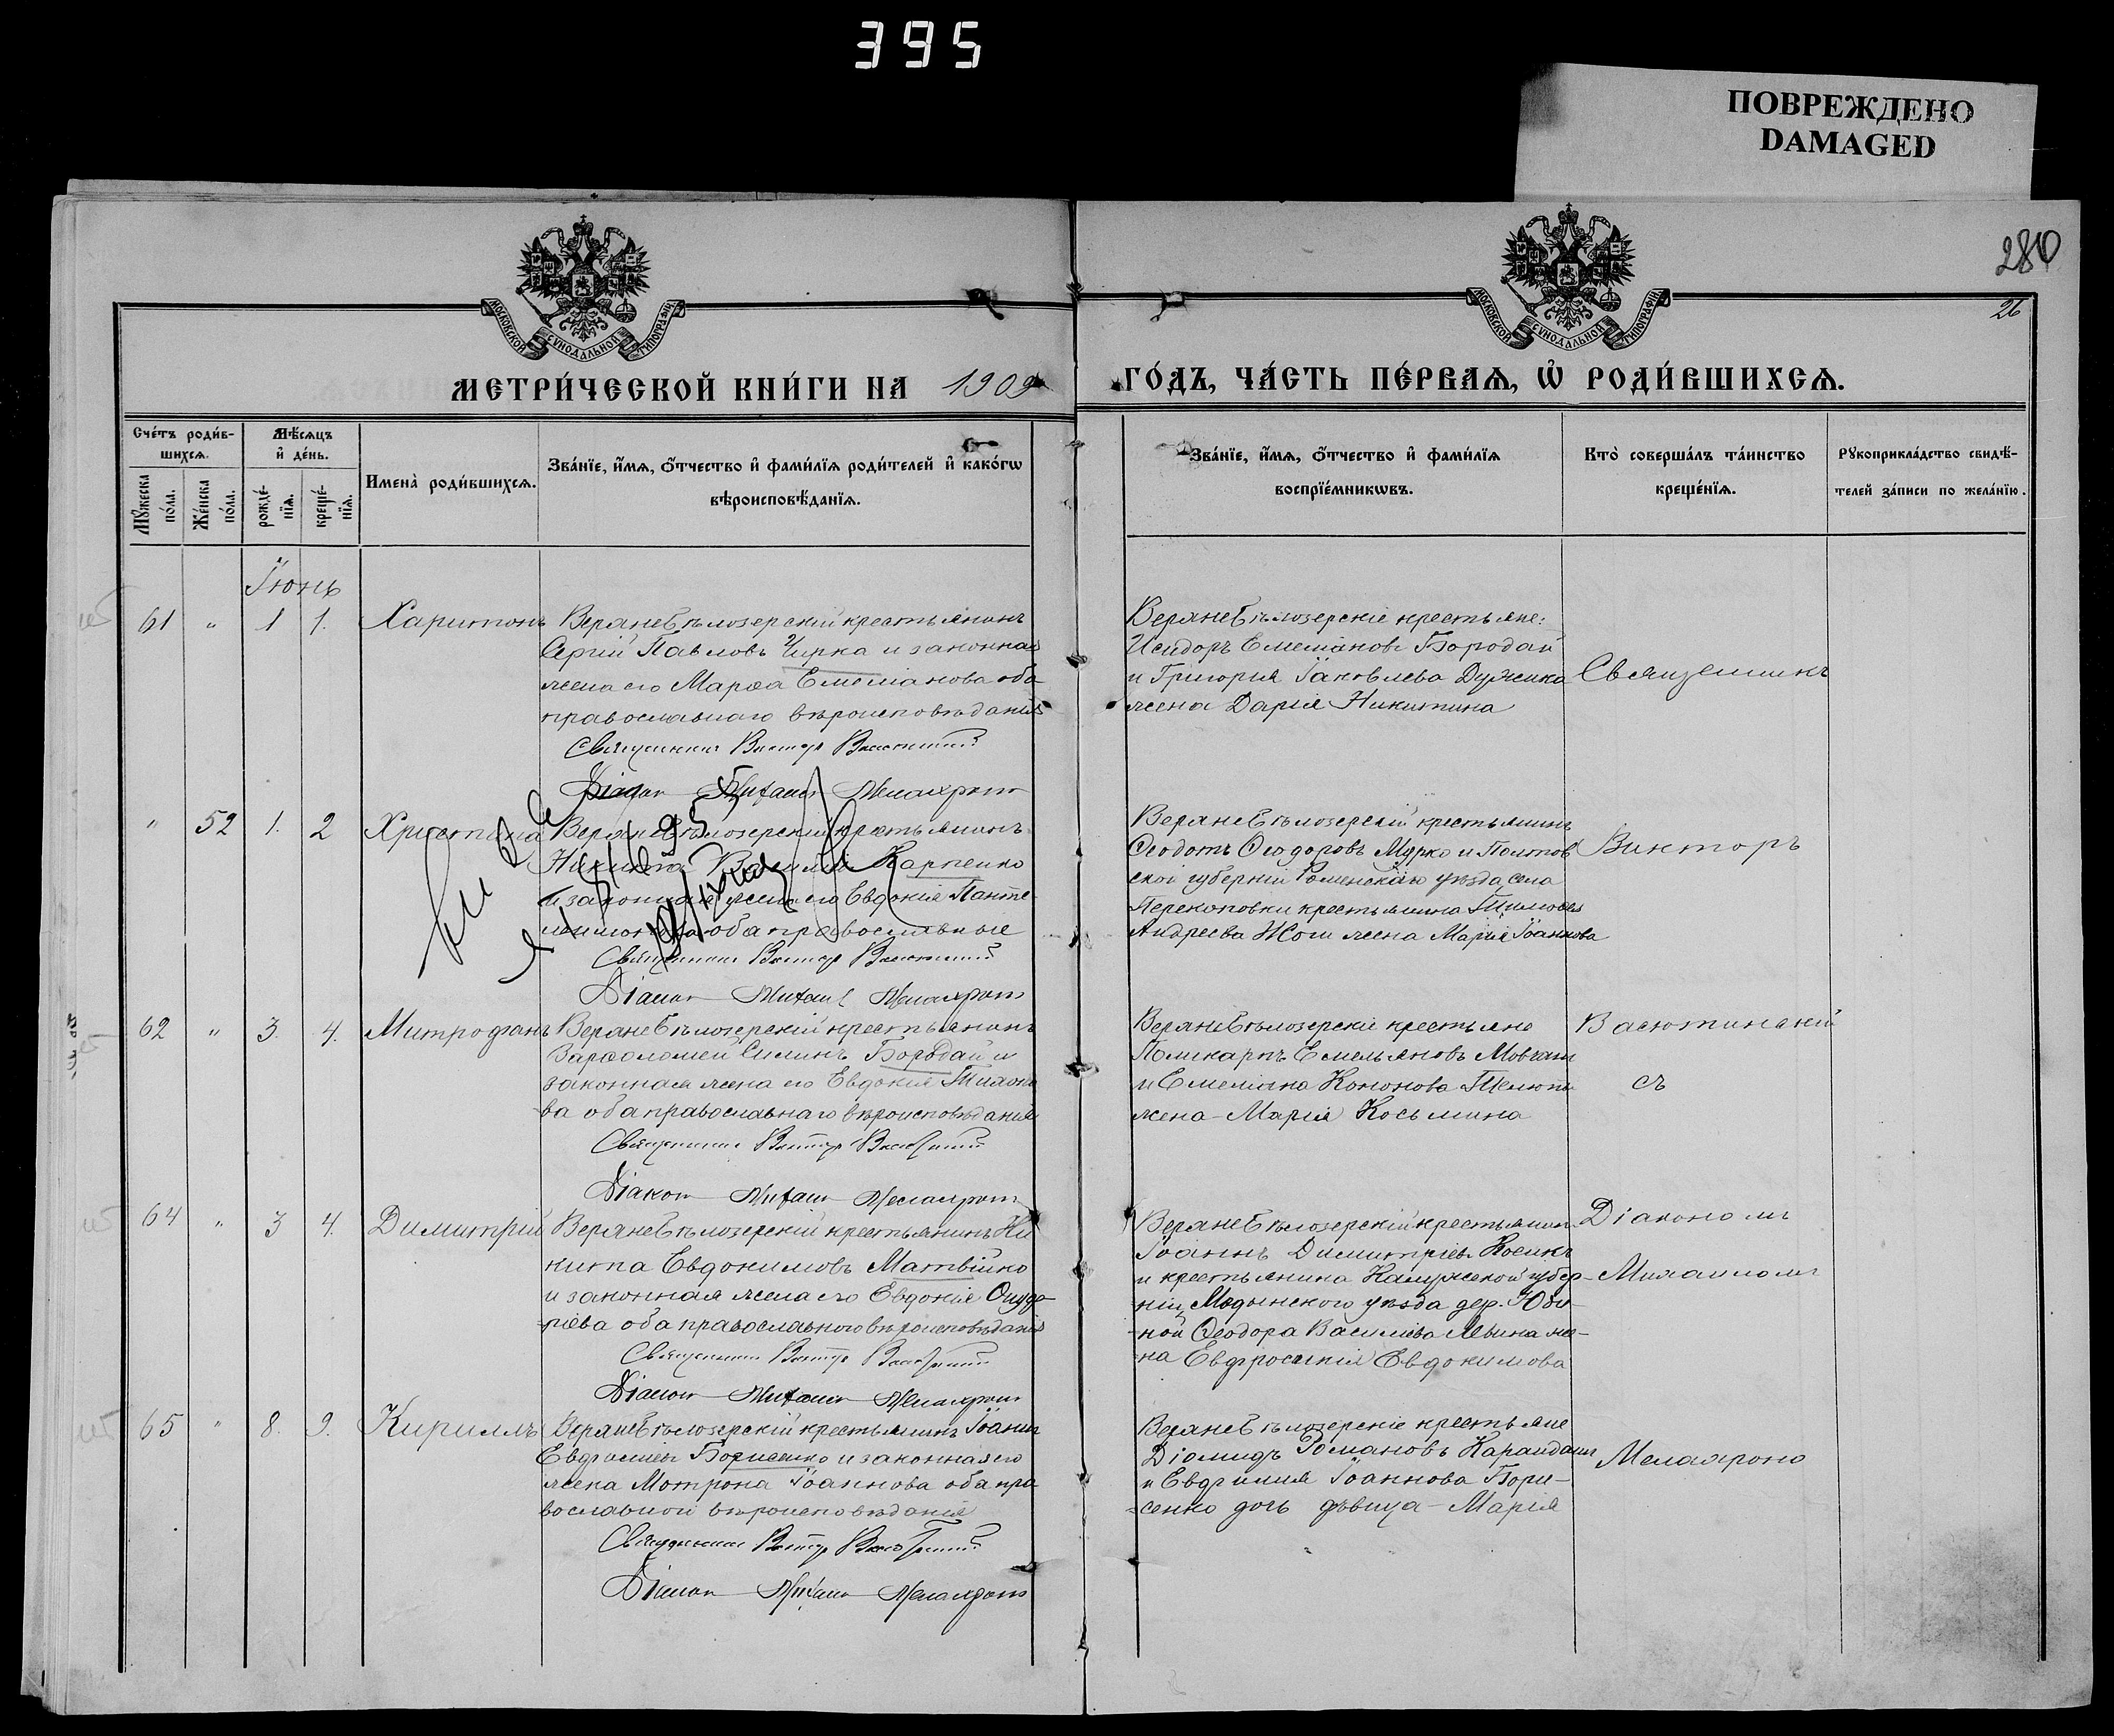 395
ПОВРЕЖДЕНО
DAMAGED
280
26
МОСКОВСКОЙ СѴНОДАЛЬНОЙ ТИПОГРАФІИ
МОСКОВСКОЙ СѴНОДАЛЬНОЙ ТИПОГРАФІИ
МЕТРИ́ЧЕСКОЙ КНИ́ГИ НА 1909
ГО́ДЪ, ЧА́СТЬ ПЕ́РВАѦ, Ѡ҆ РОДИ́ВШИХСѦ.
Сче́тъ роди́в-
шихсѧ.
Мꙋ́жеска по́ла.
Же́нска по́ла.
Мѣ́сѧцъ
и҆ де́нь.
рожде́-
нїѧ.
креще́-
нїѧ.
И҆мена̀ роди́вшихсѧ.
Зва́нїе, и҆́мѧ, о҆́тчество и҆ фами́лїѧ роди́телей и҆ како́гѡ
вѣроисповѣ́данїѧ.
Зва́нїе, и҆́мѧ, о҆́тчество и҆ фами́лїѧ
воспрїе́мникѡвъ.
Кто̀ соверша́лъ та́инство
креще́нїѧ.
Рꙋкоприкла́дство свидѣ́-
телей за́писи по жела́нїю.
Іюнь
61 " 1 1. Харитонъ
Верхнебѣлозерскій крестьянинъ
Сергій Павловъ Чирка и законная
жена его Марѳа Емеліанова оба
православнаго вѣроисповѣданія
Священникъ Викторъ Васютинскій
Діаконъ Михаилъ
Верхнебѣлозерскіе крестьяне:
Исидоръ Емеліановъ Бородай
и Григорія Іаковлева Дужика
жена Дарія Никитина
Священникъ
" 52 1. 2 Христина
Верхнебѣлозерскій крестьянинъ
Никита Карпенко
и законная жена его Евдокія Панте-
леимонова оба православные
Священникъ Викторъ Васютинскій
Діаконъ Михаилъ
Верхнебѣлозерскій крестьянинъ
Ѳеодотъ Ѳеодоровъ Мурко и Полтав
ской губерніи Роменскаго уѣзда села
Перекоповки крестьянина Тимоѳея
Андреева жена Марія Іоаннова
Викторъ
62 " 3. 4. Митрофанъ
Верхнебѣлозерскій крестьянинъ
Варѳоломей Силинъ Бородай и
законная жена его Евдокія Тихоно
ва оба православнаго вѣроисповѣданія
Священникъ Викторъ Васютинскій
Діаконъ Михаилъ
Верхнебѣлозерскіе крестьяне
Поликарпъ Емельяновъ Мовчан
и Емеліана Кононова
жена Марія Косьмина
Васютинскій
съ
64 " 3 4. Димитрій
Верхнебѣлозерскій крестьянинъ Ни
кита Евдокимовъ Матвійко
и законная жена его Евдокія
оба православного вѣроисповѣданія
Священникъ Викторъ Васютинскій
Діаконъ Михаилъ
Верхнебѣлозерскій крестьянин
Іоаннъ Димитріевъ Косикъ
и крестьянина Калужской губер-
ніи, Медынского уѣзда дер. Юди-
ной Ѳеодора Василіева же-
на Евфросинія Евдокимова
Діакономъ
Михаиломъ
65 " 8. 9. Кириллъ
Верхнебѣлозерскій крестьянинъ Іоаннъ
Евфиміевъ Борисенко и законная его
жена Мотрона Іоаннова оба пра
вославной вѣроисповѣданія
Священникъ Викторъ Васютинскій
Діаконъ Михаилъ
Верхнебѣлозерскіе крестьяне
Діомидъ Романовъ
и Евфимия Іоаннова Бори-
-сенко дочь дѣвица Марія